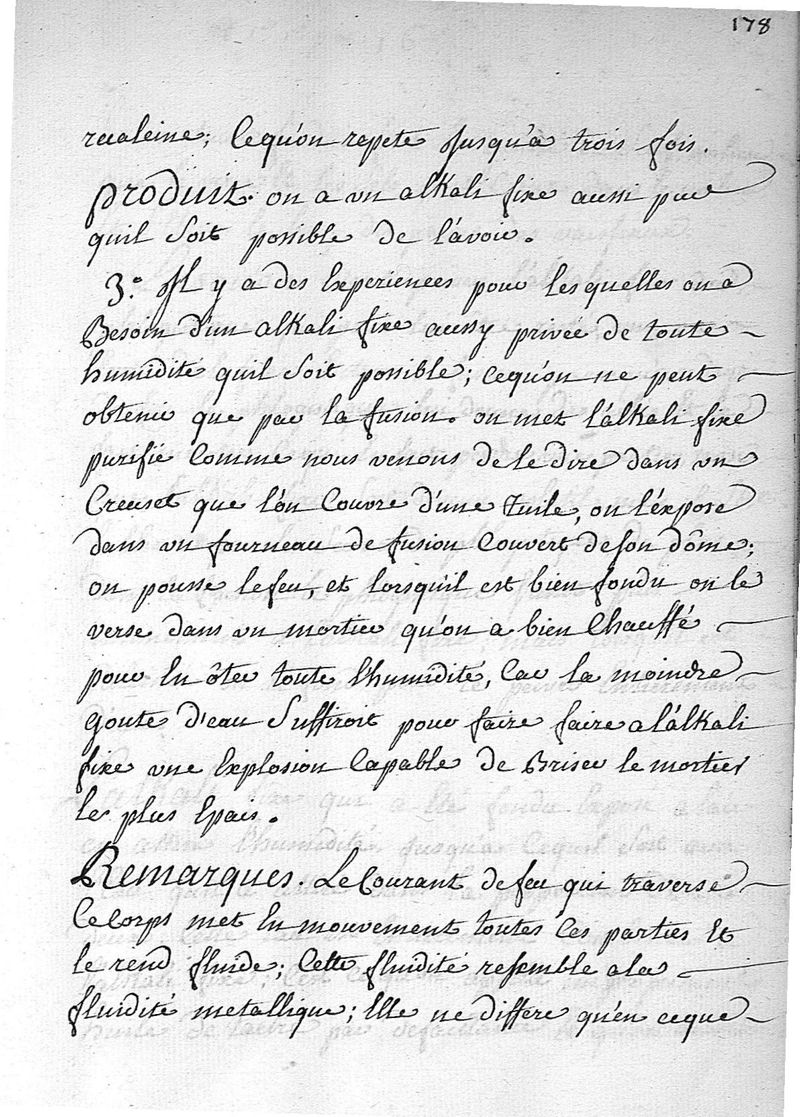 178
recalcine; Cequ'on repete Jusqu'a trois fois.
produit. on a un alkali fixe aussi pur
quil soit possible de l'avoir.
3.° Il y a des Experiences pour lesquelles on a
Besoin d'un alkali fixe aussy privée de toute
humidité quil soit possible; cequ'on ne peut
obtenir que par la fusion. on met l'alkali fixe
purifié Comme nous venons de le dire dans un
Creuset que l'on Couvre d'une Tuile, on l'expose
dans un fourneau de fusion Couvert de son dôme;
on pousse le feu, et lorsqu'il est bien fondu on le
verse dans un mortier qu'on a bien Chauffé
pour En ôter toute l'humidité, Car la moindre
Goute d'eau Suffiroit pour faire faire a l'alkali
fixe une Explosion Capable de Briser le mortier
le plus Epais.
Remarques. Le Courant de feu qui traverse
Ce Corps met En mouvement toutes Ces parties Et
le rend fluide; Cette fluidité ressemble a la
fluidité metallique; Elle ne differe qu'en ceque